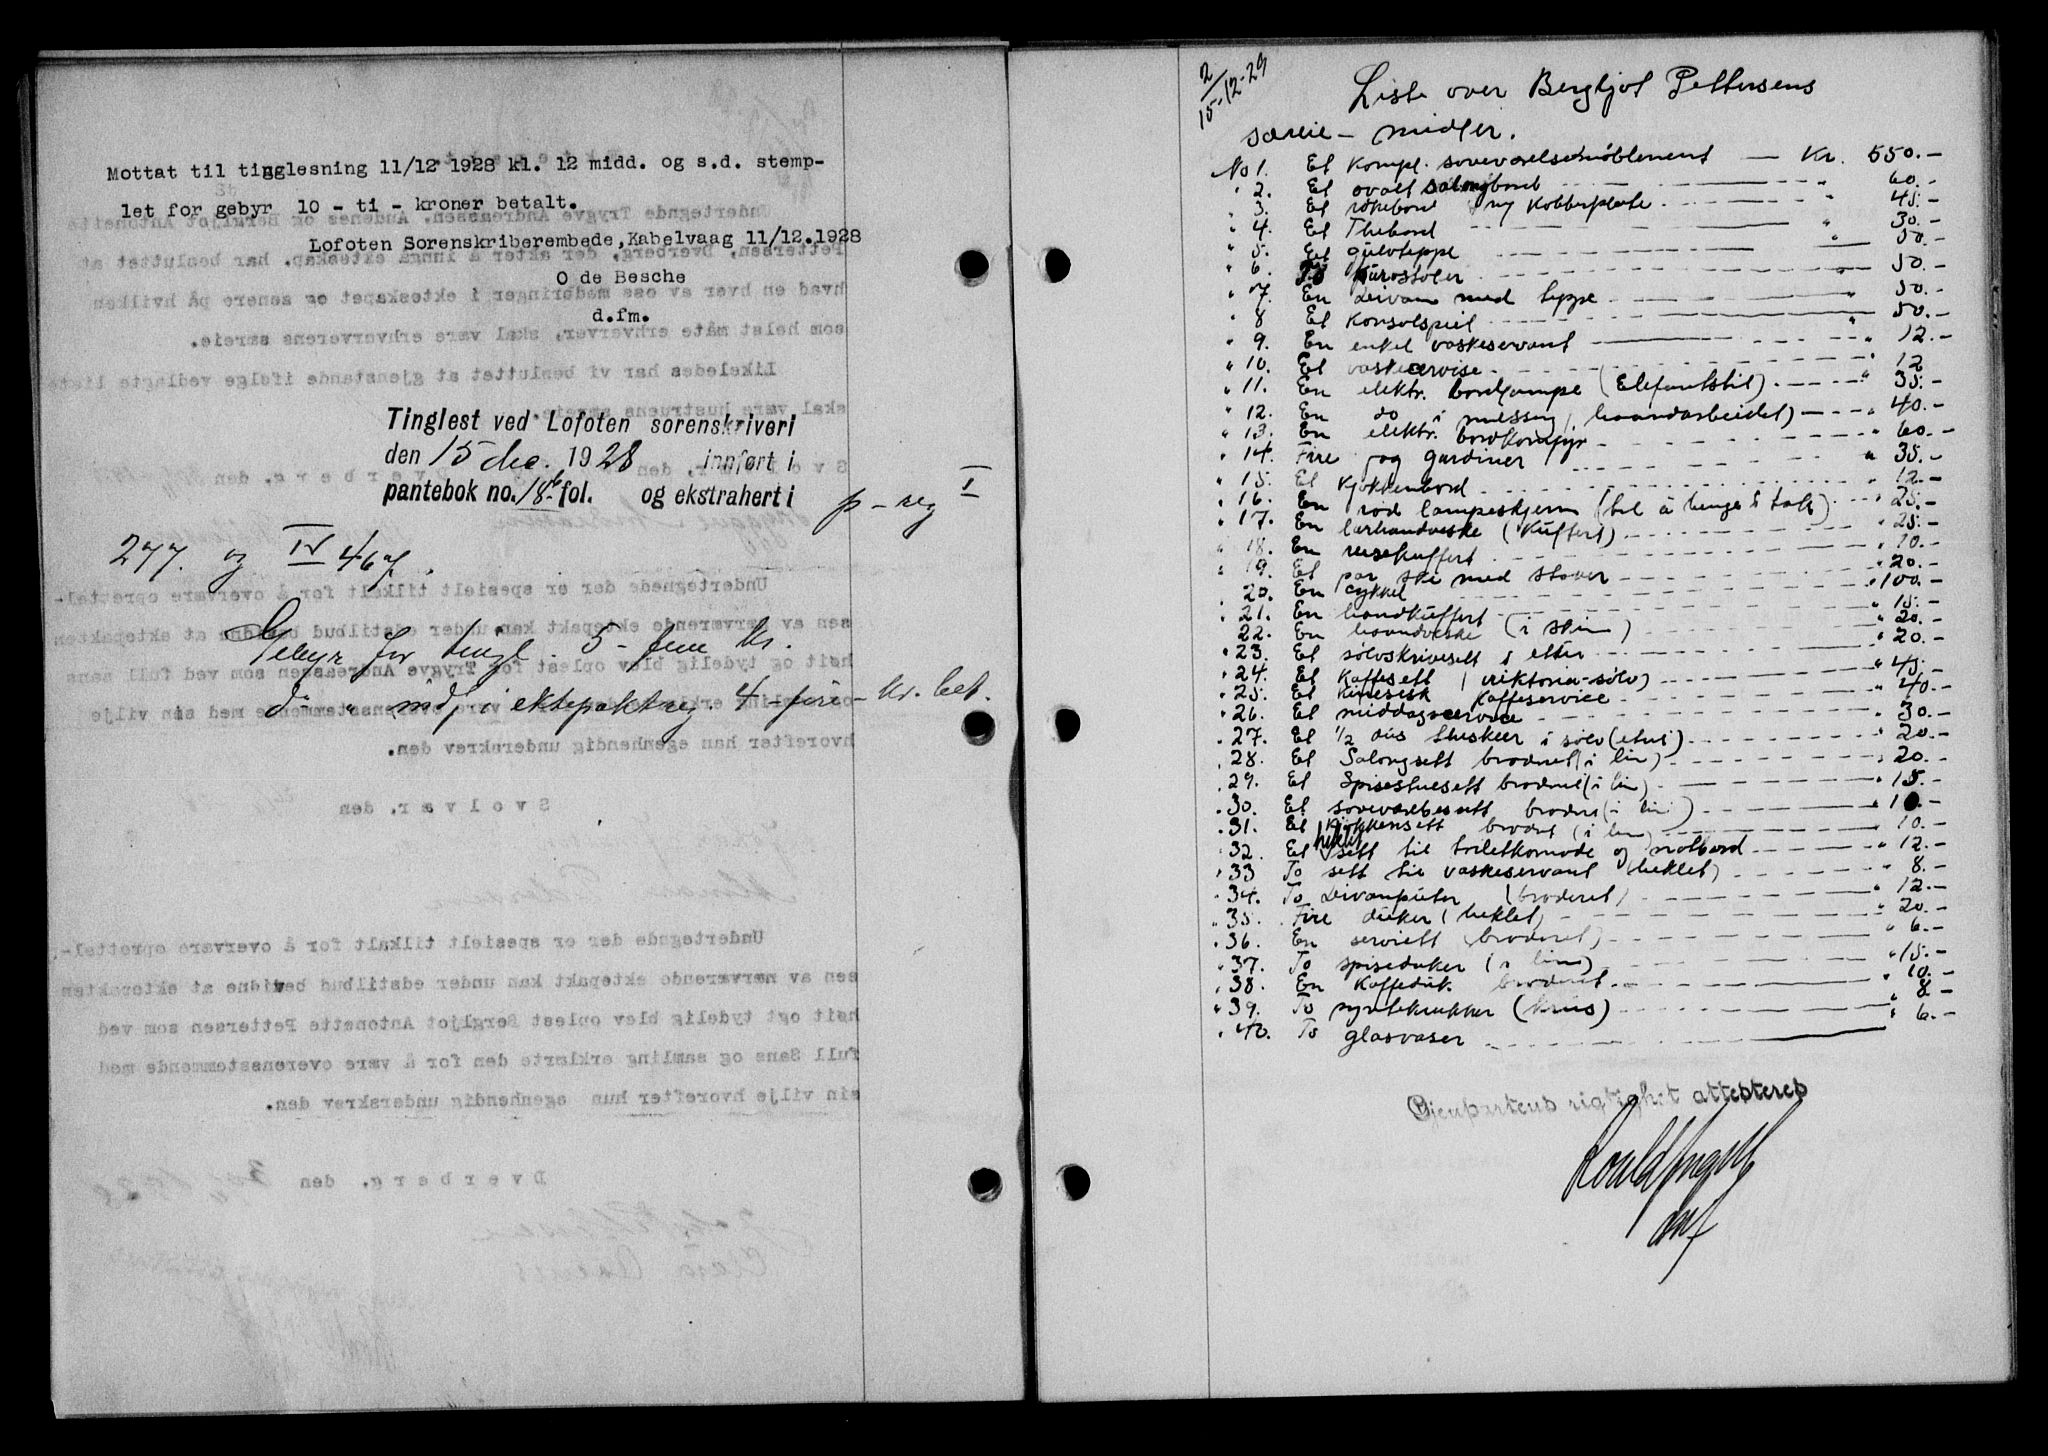 Mottat til tinglesning 11/12 1928 kl. 12 midd. og s.d. stemp-
let for gebyr 10 - ti - kroner betalt.
Lofoten Sorenskriberembede, Kabelvaag 11/12.1928
O de Besche
d.fm.
Tinglest ved Lofoten sorenskriveri
den 15 dec. 1928 innført i
pantebok no. 18 b fol. og ekstrahert i p-reg I
277. og IV 46
Gebyr for tingl. 5 - fem kr.
do " indf. i ektepaktreg 4 - fire - kr. bet.
2/15-12-29
Liste over Bergljot Pettersens
særeie - midler.
No 1. Et kompl. soveværelsemøblement — Kr. 550.-
" 2. Et ovalt salongbord " 60.-
" 3. Et røkebord m/ kobberplate " 45.-
" 4. Et Thebord " 30.-
" 5. Et gulvteppe " 50.-
" 6. To purostoler " 50.-
" 7. En divan med teppe " 50.-
" 8 Et konsolspeil " 50.-
" 9. En enkel vaskeservant " 12.-
" 10. Et vaskeservise " 12
" 11. En elektr. bordlampe (Elefantstil) " 35.-
" 12. En do i messing (haandarbeidet) " 40.-
" 13. En elektr. bordkomfyr " 60.-
" 14. Fire fag gardiner " 35.-
" 15. Et kjøkkenbord " 12.-
" 16. En rød lampeskjerm (til å henge i tak) " 25.-
" 17. En lærhandveske (Kuffert) " 25.-
" 18. En reisekuffert " 10.-
" 19. Et par ski med staver " 20.-
" 20. En cykkel " 100.-
" 21. En handkuffert " 15.-
" 22. En haandveske (i skin) " 20.-
" 23. Et sølvskrivesett i etui " 20.-
" 24. Et Kaffesett (viktoria-sølv) " 45.-
" 25. Et Kinesisk Kaffeservice " 40.-
" 26. Et middagservice " 30.-
" 27. Et 1/2 dus theskeer i sølv (etui) " 20.-
" 28. Et Salongsett broderet (i lin) " 20.-
" 29. Et Spisestuesett broderet (i lin) " 15.-
" 30. Et soveværelsesett broderi (i lin) " 10.-
" 31. Et Kjøkkensett broderi (i lin) " 10.-
" 32. Et heklet sett til toiletkomode og natbord " 12.-
" 33 To sett til vaskeservant (heklet) " 8.-
" 34. To Divanputer (broderet) " 12.-
" 35. Fire duker (heklet) " 20.-
" 36. En serviett (broderet) " 6.-
" 37. To spiseduker (i lin) " 15.-
" 38. En Kaffeduk broderet " 10.-
" 39. To syltekrukker (krus) " 8 -
" 40. To glasvaser " 6.-
Gjenpartens rigtighet attesteres